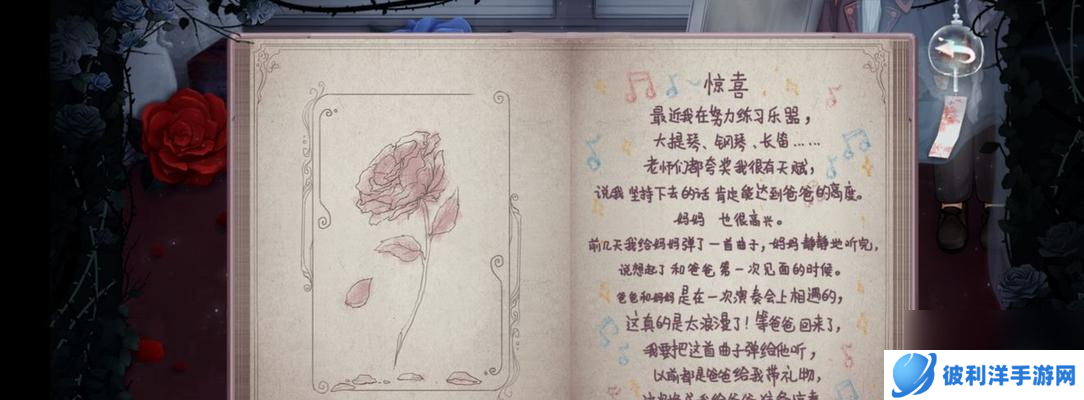 惊喜
最近我在努力练习乐器，
大提琴、钢琴、长笛……
老师们都夸奖我很有天赋，
说我坚持下去的话肯定能达到爸爸的高度。
妈妈 也很高兴。
前几天我给妈妈弹了一首曲子，妈妈静静地听完，
说想起了和爸爸第一次见面的时候。
爸爸和妈妈是在一次演奏会上相遇的，
这真的是太浪漫了！等爸爸回来了，
我要把这首曲子弹给他听，
以前都是爸爸给我带礼物，
彼利洋手游网